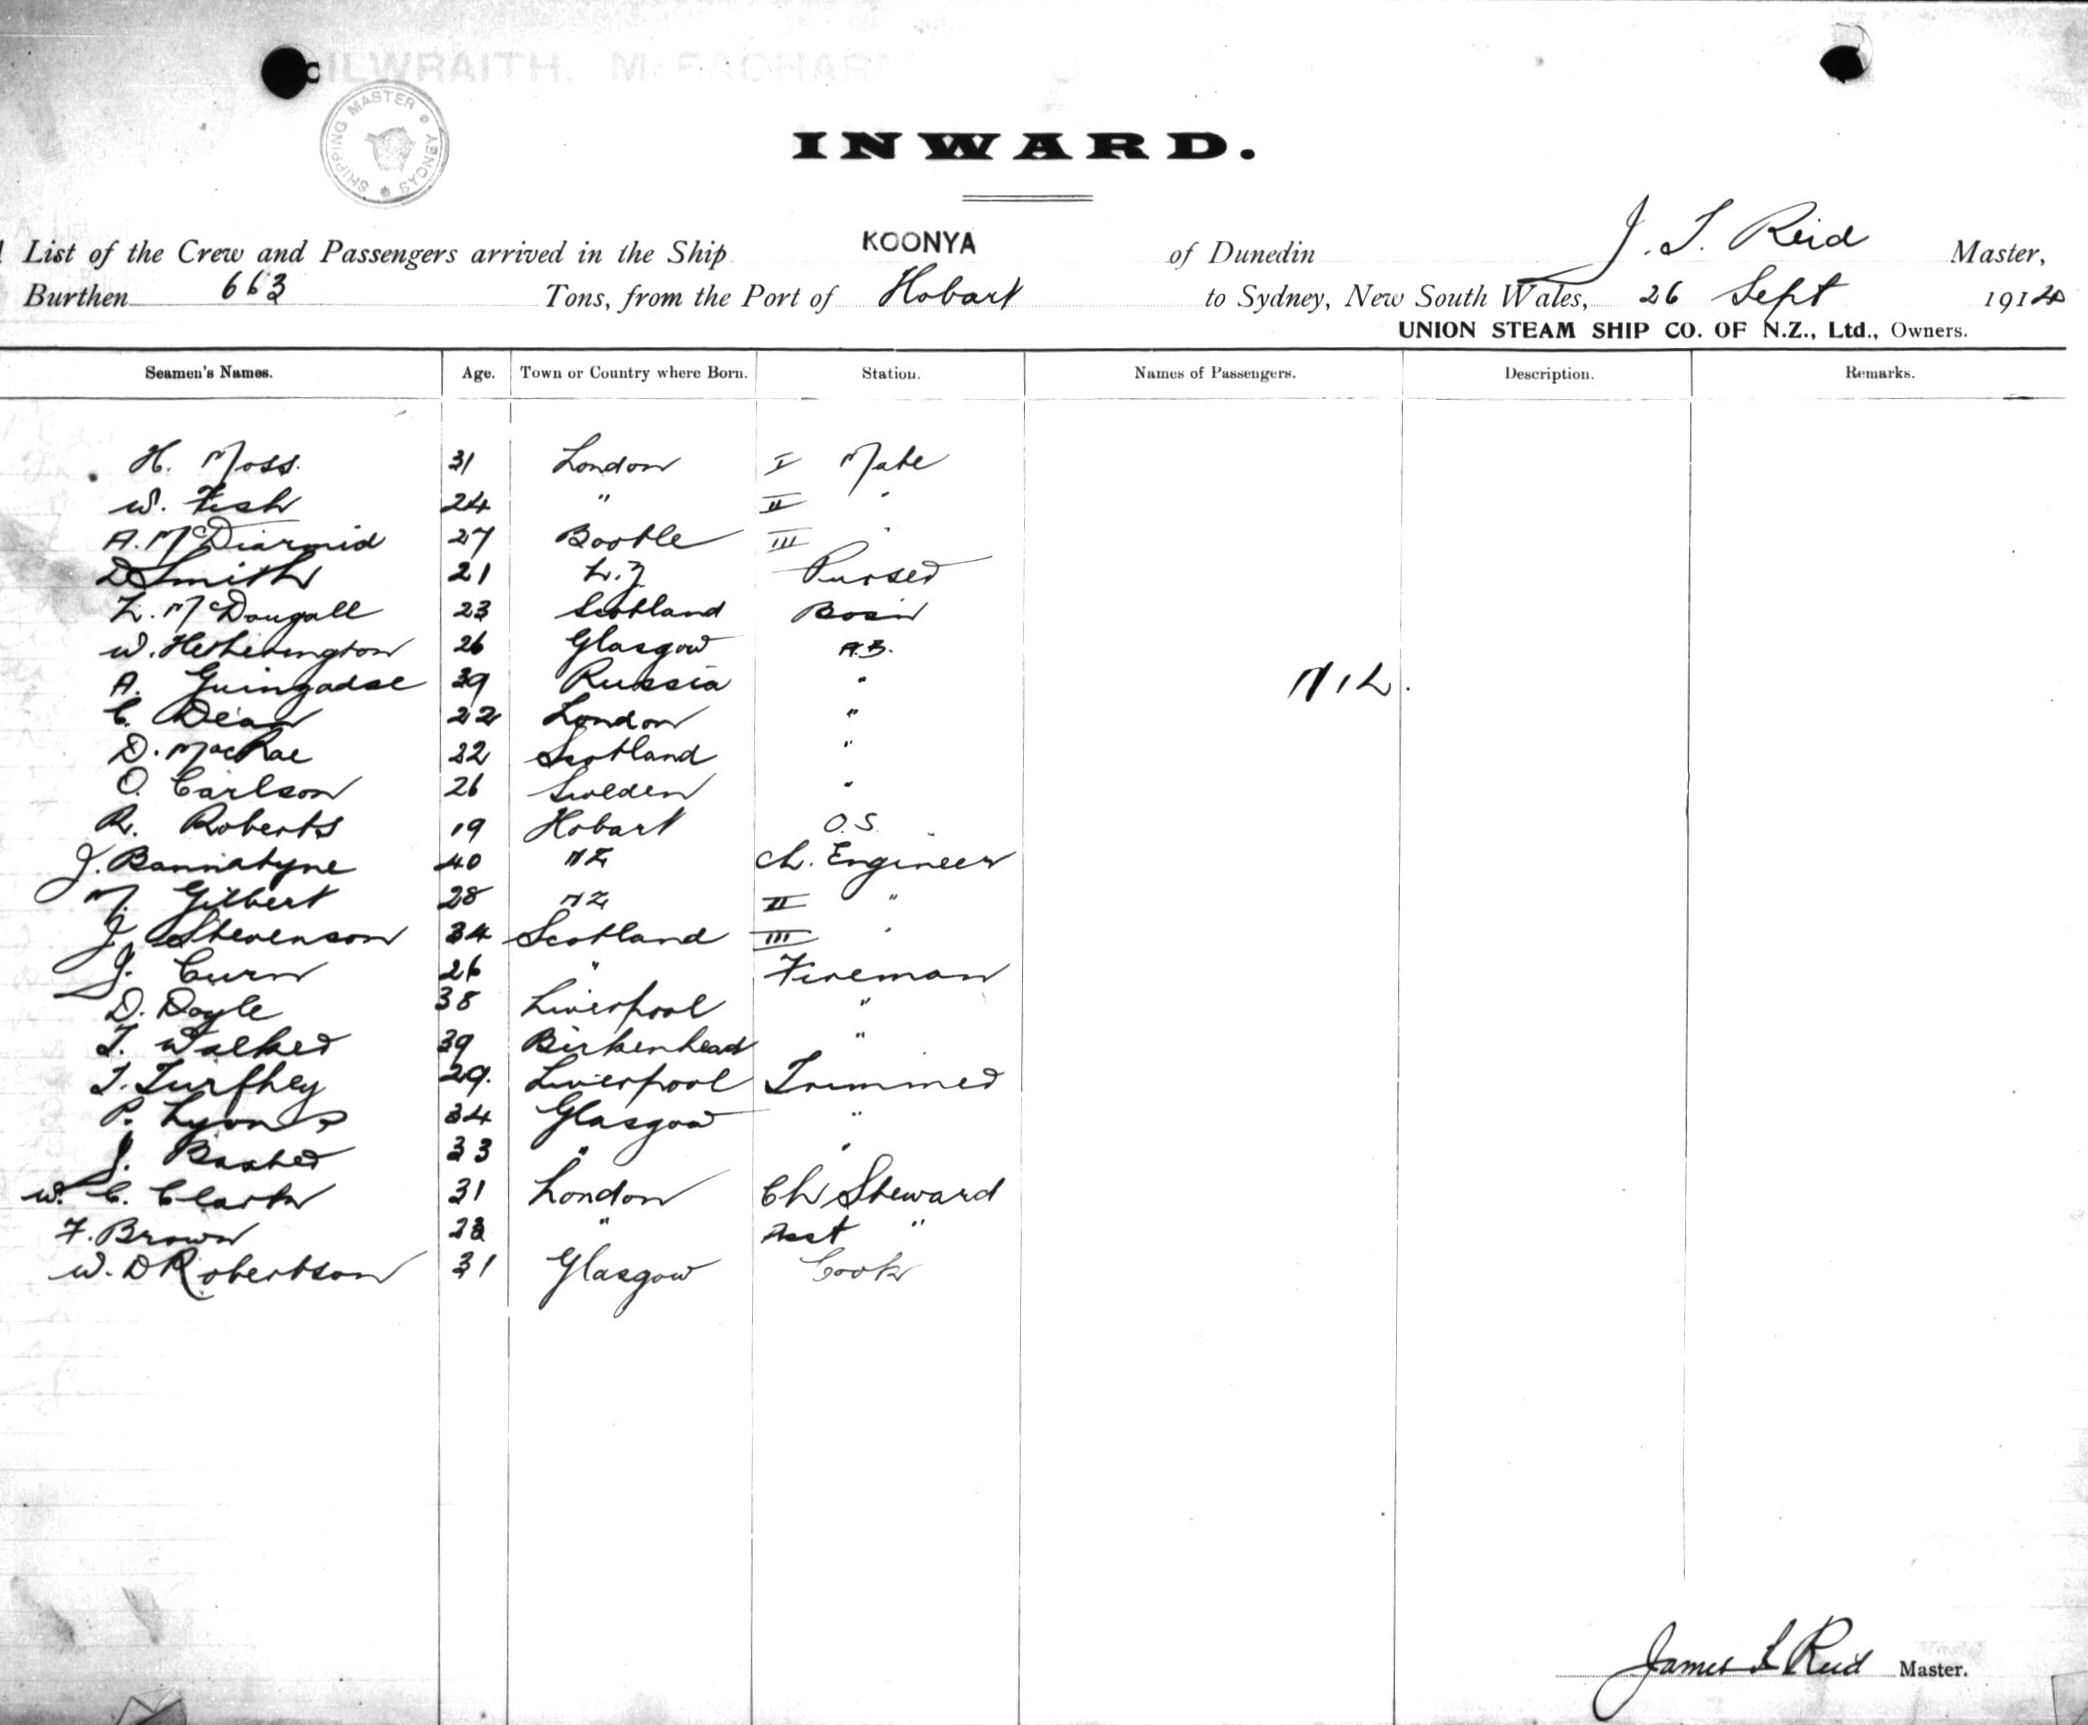 SHIPPING MASTER SYDNEY
INWARD.
List of the Crew and Passengers arrived in the Ship KOONYA of Dunedin J. S. Reid Master,
Burthen 663 Tons, from the Port of Hobart to Sydney, New South Wales, 26 Sept 1914
UNION STEAM SHIP CO. OF N.Z., Ltd., Owners.
Seamen's Names. Age. Town or Country where Born. Station. Names of Passengers. Description. Remarks.
H. Moss. 31 London I Mate
W. Fish 24 " II "
A. McDiarmid 27 Bootle III "
D Smith 21 Purser
L. McDougall 23 Scotland Bosn
W. Hetherington 26 Glasgow A.B.
A. Guingadse 39 Russia " NIL.
C. Dean 22 London "
D. MacRae 22 Scotland "
O. Carlson 26 Sweden "
R. Roberts 19 Hobart O.S.
J. Bannatyne 40 NZ Ch. Engineer
M. Gilbert 28 NZ II "
J. Stevenson 34 Scotland III "
J. Curn 26 " Fireman
D. Doyle 38 Liverpool "
T. Walker 39 Birkenhead "
T. Turfhey 29. Liverpool Trimmer
P. Lyons 34 Glasgow "
J. Baxter 33 " "
W. C. Clark 31 London Ch Steward
F. Brown 23 " Asst "
W. D Robertson 31 Glasgow Cook
James S Reid Master.